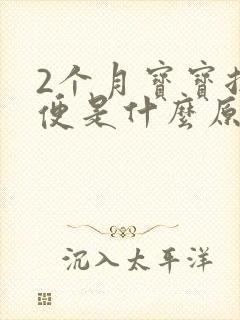 2个月寶寶
便是什麼原
沉入太平洋